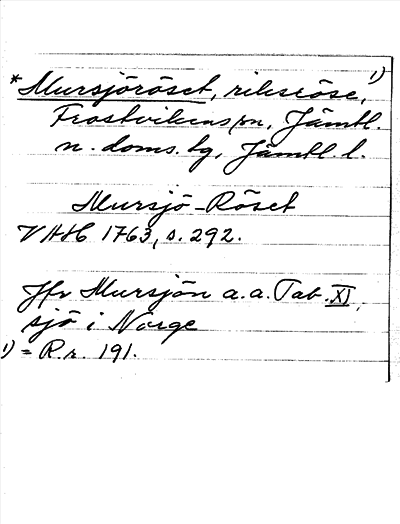 *Mursjöröset, riksröse, 1)
Frostvikens sn, Jämtl.
n. doms. tg, Jämtl. l.
Mursjö-Röset
VAH 1763, s. 292.
Jfr Mursjön a. a. Tab. XI,
sjö i Norge
1) = R.r. 191.